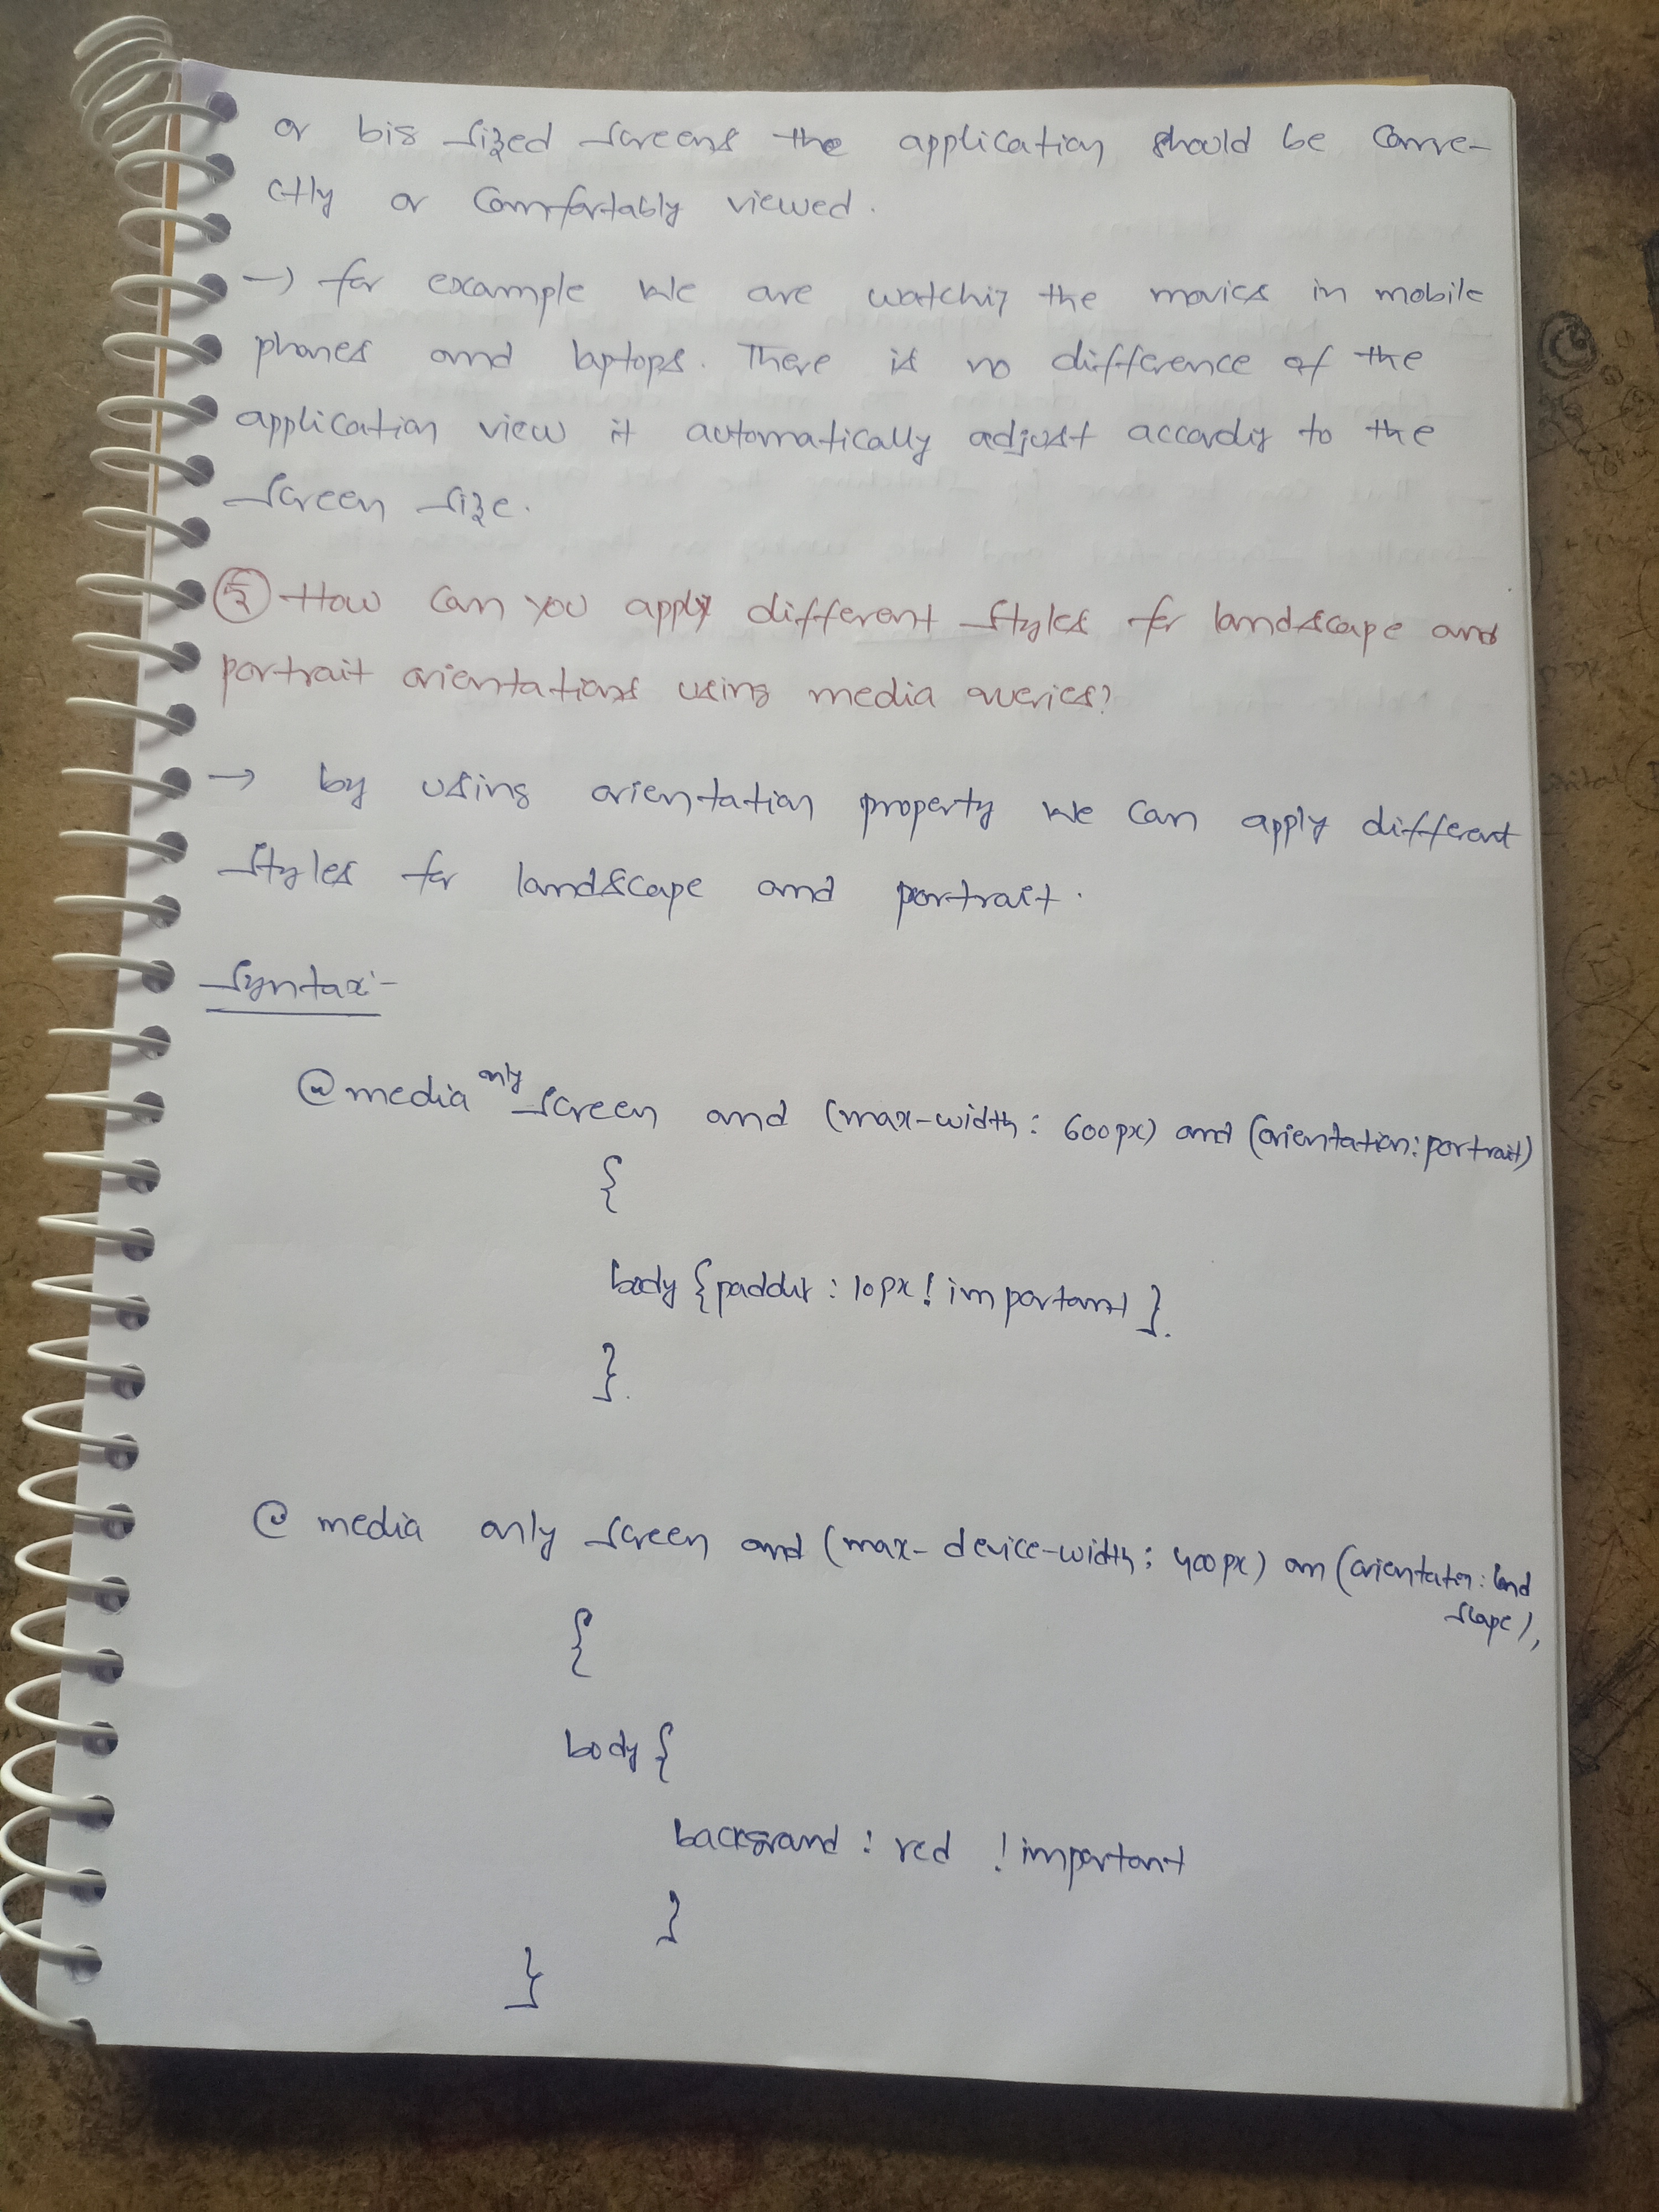 or big sized screens the application should be corre-
ctly or comfortably viewed.
→ for example we are watchig the movies in mobile
phones and laptops. There is no difference of the
application view it automatically adjust accordig to the
screen size.
⑤ How can you apply different styles for landscape and
portrait orientations using media queries?
→ by using orientation property we can apply different
styles for landscape and portrait.
Syntax:-
@media only screen and (max-width: 600px) and (orientation:portrait)
{
body { : 10px !important }.
}.
@ media only screen and (max-device-width: 400px) an (orientation: land
scape),
{
body {
background : red !important
}
}